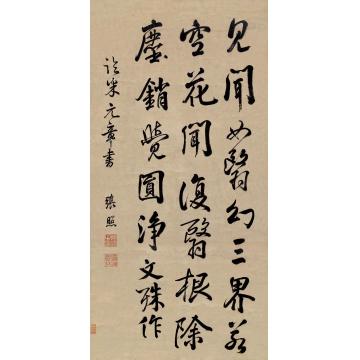 見聞如翳幻三界若
空花聞復翳根除
塵銷覺圓淨文殊作
臨米元章書 張照